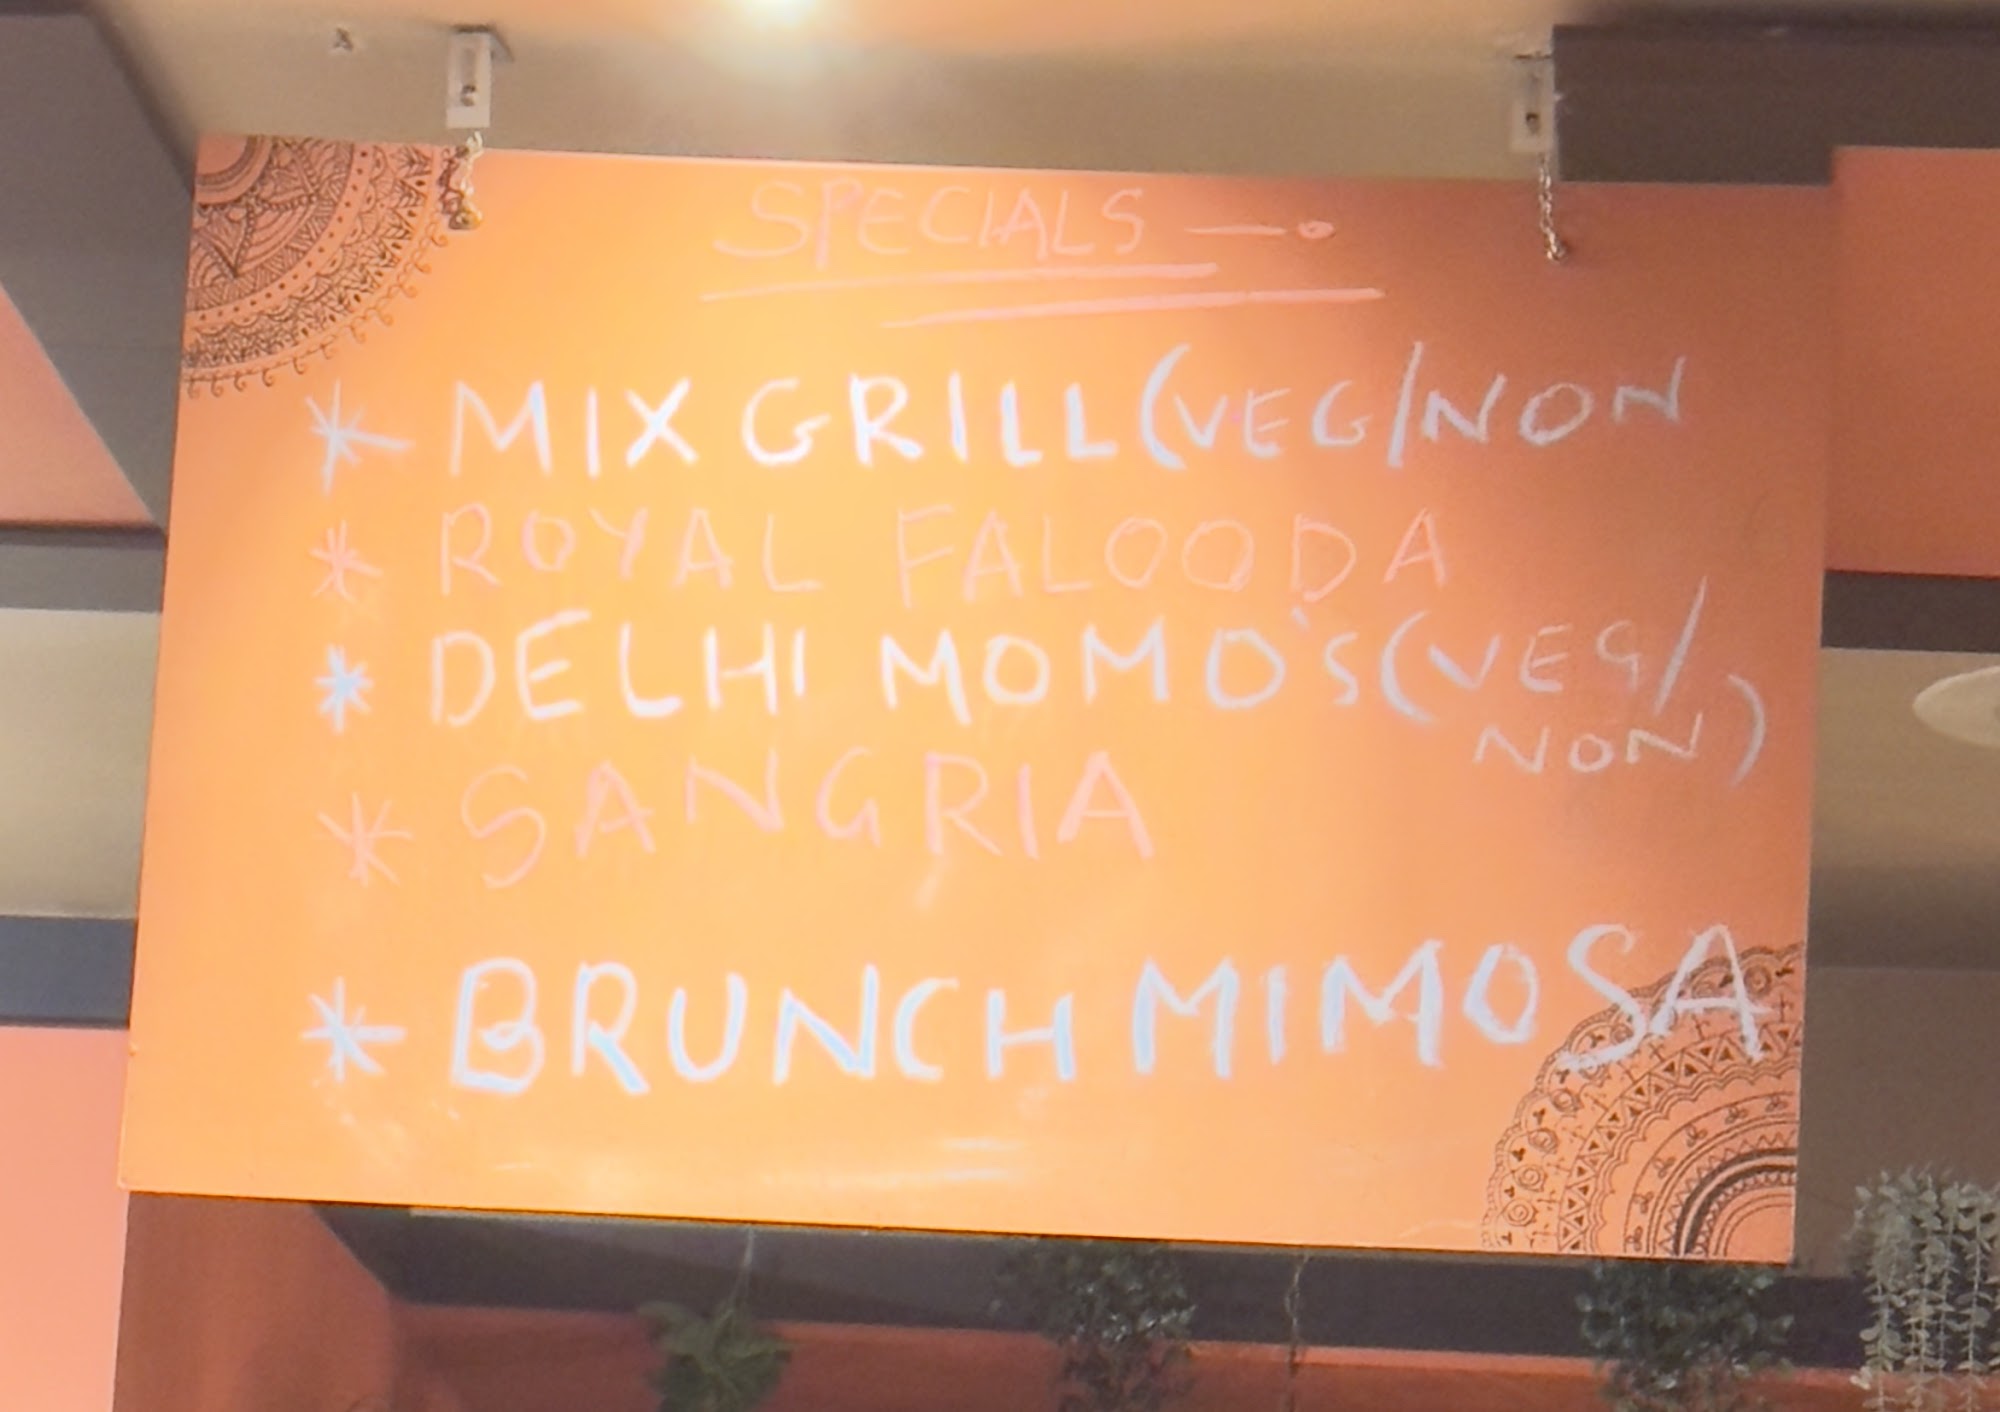 SPECIALS —.
* MIX GRILL (VEG/NON
* ROYAL FALOODA
* DELHI MOMO'S (VEG/
NON)
* SANGRIA
* BRUNCH MIMOSA